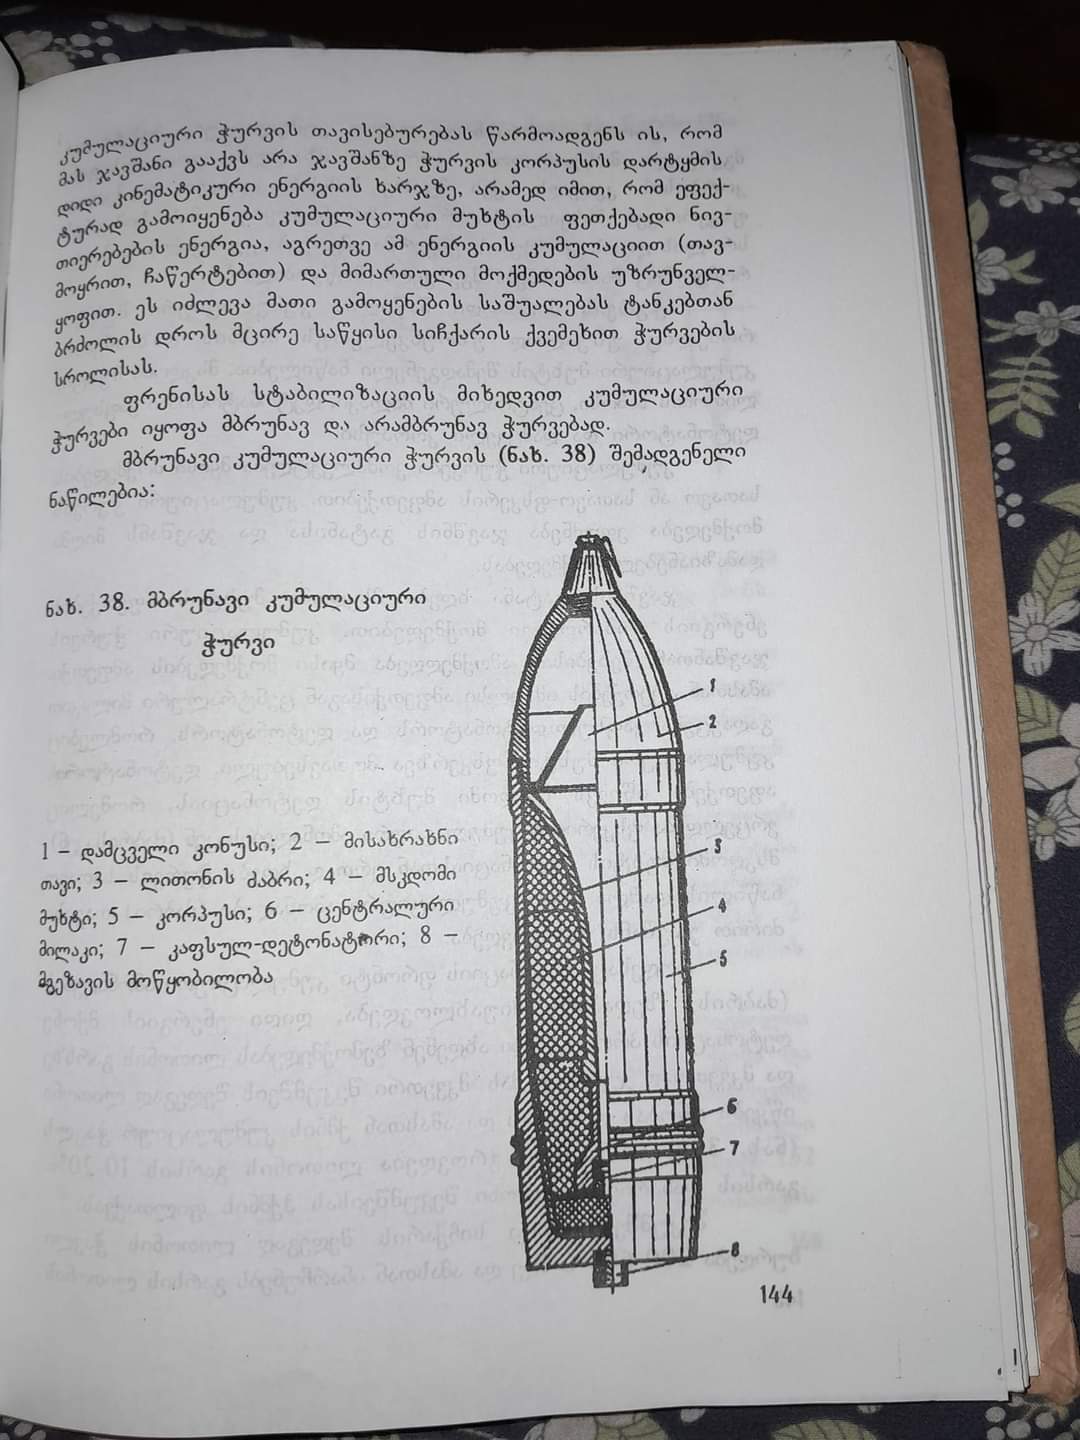 კუმულაციური ჭურვის თავისებურებას წარმოადგენს ის, რომ
მას ჯავშანი გააქვს არა ჯავშანზე ჭურვის კორპუსის დარტყმის
დიდი კინემატიკური ენერგიის ხარჯზე, არამედ იმით, რომ ეფექ-
ტურად გამოიყენება კუმულაციური მუხტის ფეთქებადი ნივ-
თიერებების ენერგია, აგრეთვე ამ ენერგიის კუმულაციით (თავ-
მოყრით, ჩაწერტებით) და მიმართული მოქმედების უზრუნველ-
ყოფით. ეს იძლევა მათი გამოყენების საშუალებას ტანკებთან
ბრძოლის დროს მცირე საწყისი სიჩქარის ქვემეხით ჭურვების
სროლისას.
ფრენისას სტაბილიზაციის მიხედვით კუმულაციური
ჭურვები იყოფა მბრუნავ და არამბრუნავ ჭურვებად.
მბრუნავი კუმულაციური ჭურვის (ნახ. 38) შემადგენელი
ნაწილებია:
ნახ. 38. მბრუნავი კუმულაციური
ჭურვი
1
2
3
4
5
6
7
8
1 – დამცველი კონუსი; 2 – მისახრახნი
თავი; 3 – ლითონის ძაბრი; 4 – მსკდომი
მუხტი; 5 – კორპუსი; 6 – ცენტრალური
მილაკი; 7 – კაფსულ-დეტონატორი; 8 –
მგეზავის მოწყობილობა
144